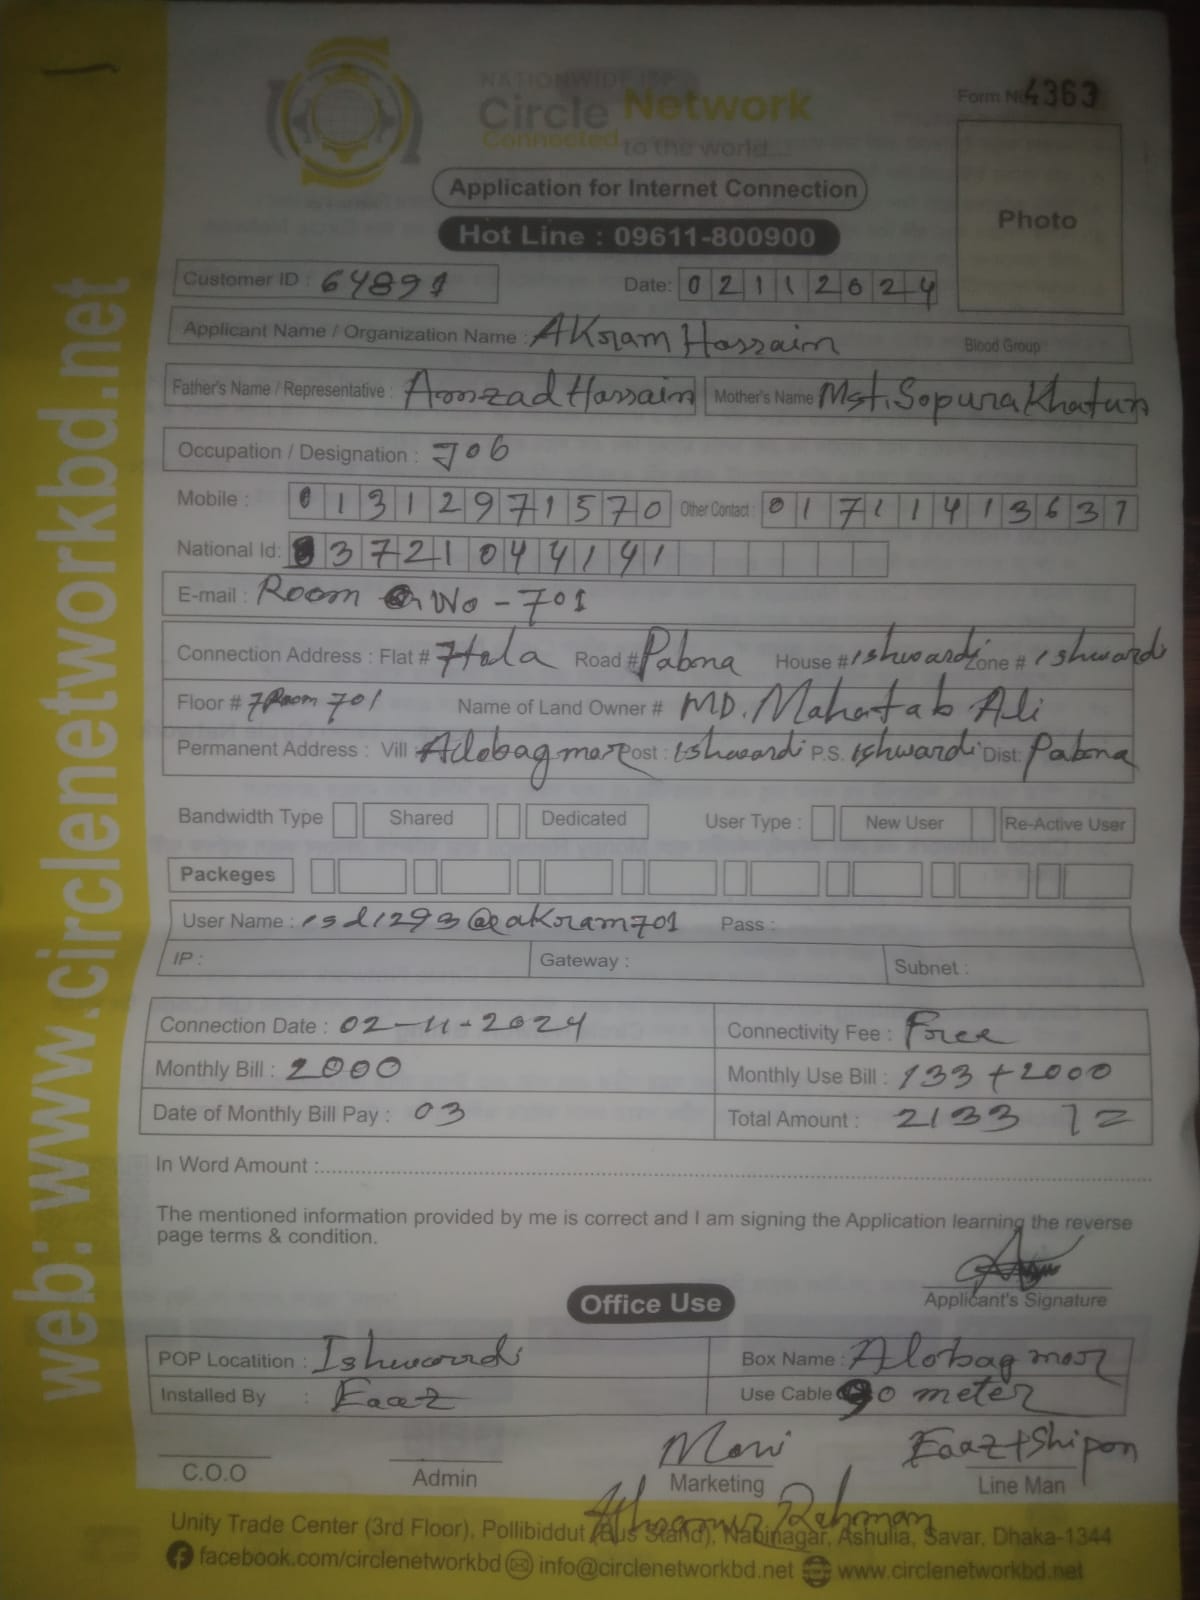 NATIONWIDE ISP
Circle Network
Connected to the world...
Form No 4363
Application for Internet Connection
Photo
Hot Line : 09611-800900
Customer ID : 64891
Date: 02112024
Applicant Name / Organization Name : AKram Hossain
Blood Group
Father's Name / Representative : Amzad Hossain Mother's Name Mst. Sopura Khatun
Occupation / Designation : Job
Mobile : 01312971570 Other Contact : 01711413637
National Id: 3721044141
E-mail : Room No - 701
Connection Address : Flat # 7tola Road # Pabna House # ishwardi Zone # ishwardi
Floor # 7 Room 701 Name of Land Owner # MD. Mahatab Ali
Permanent Address : Vill : Alobag mor Post : Ishwardi P.S. Ishwardi Dist: Pabna
Bandwidth Type Shared Dedicated User Type : New User Re-Active User
Packeges
User Name : isd1293@akram701 Pass :
IP : Gateway : Subnet :
Connection Date : 02-11-2024 Connectivity Fee : Free
Monthly Bill : 2000 Monthly Use Bill : 133 + 2000
Date of Monthly Bill Pay : 03 Total Amount : 2133
In Word Amount :
The mentioned information provided by me is correct and I am signing the Application learning the reverse
page terms & condition.
Applicant's Signature
Office Use
POP Locatition : Ishwardi Box Name : Alobag mor
Installed By : Eaaz Use Cable 90 meter
Moni Eaaz+Shipon
C.O.O Admin Marketing Line Man
Rahman
Unity Trade Center (3rd Floor), Pollibiddut (Bus Stand), Nabinagar, Ashulia, Savar, Dhaka-1344
facebook.com/circlenetworkbd info@circlenetworkbd.net www.circlenetworkbd.net
web: www.circlenetworkbd.net